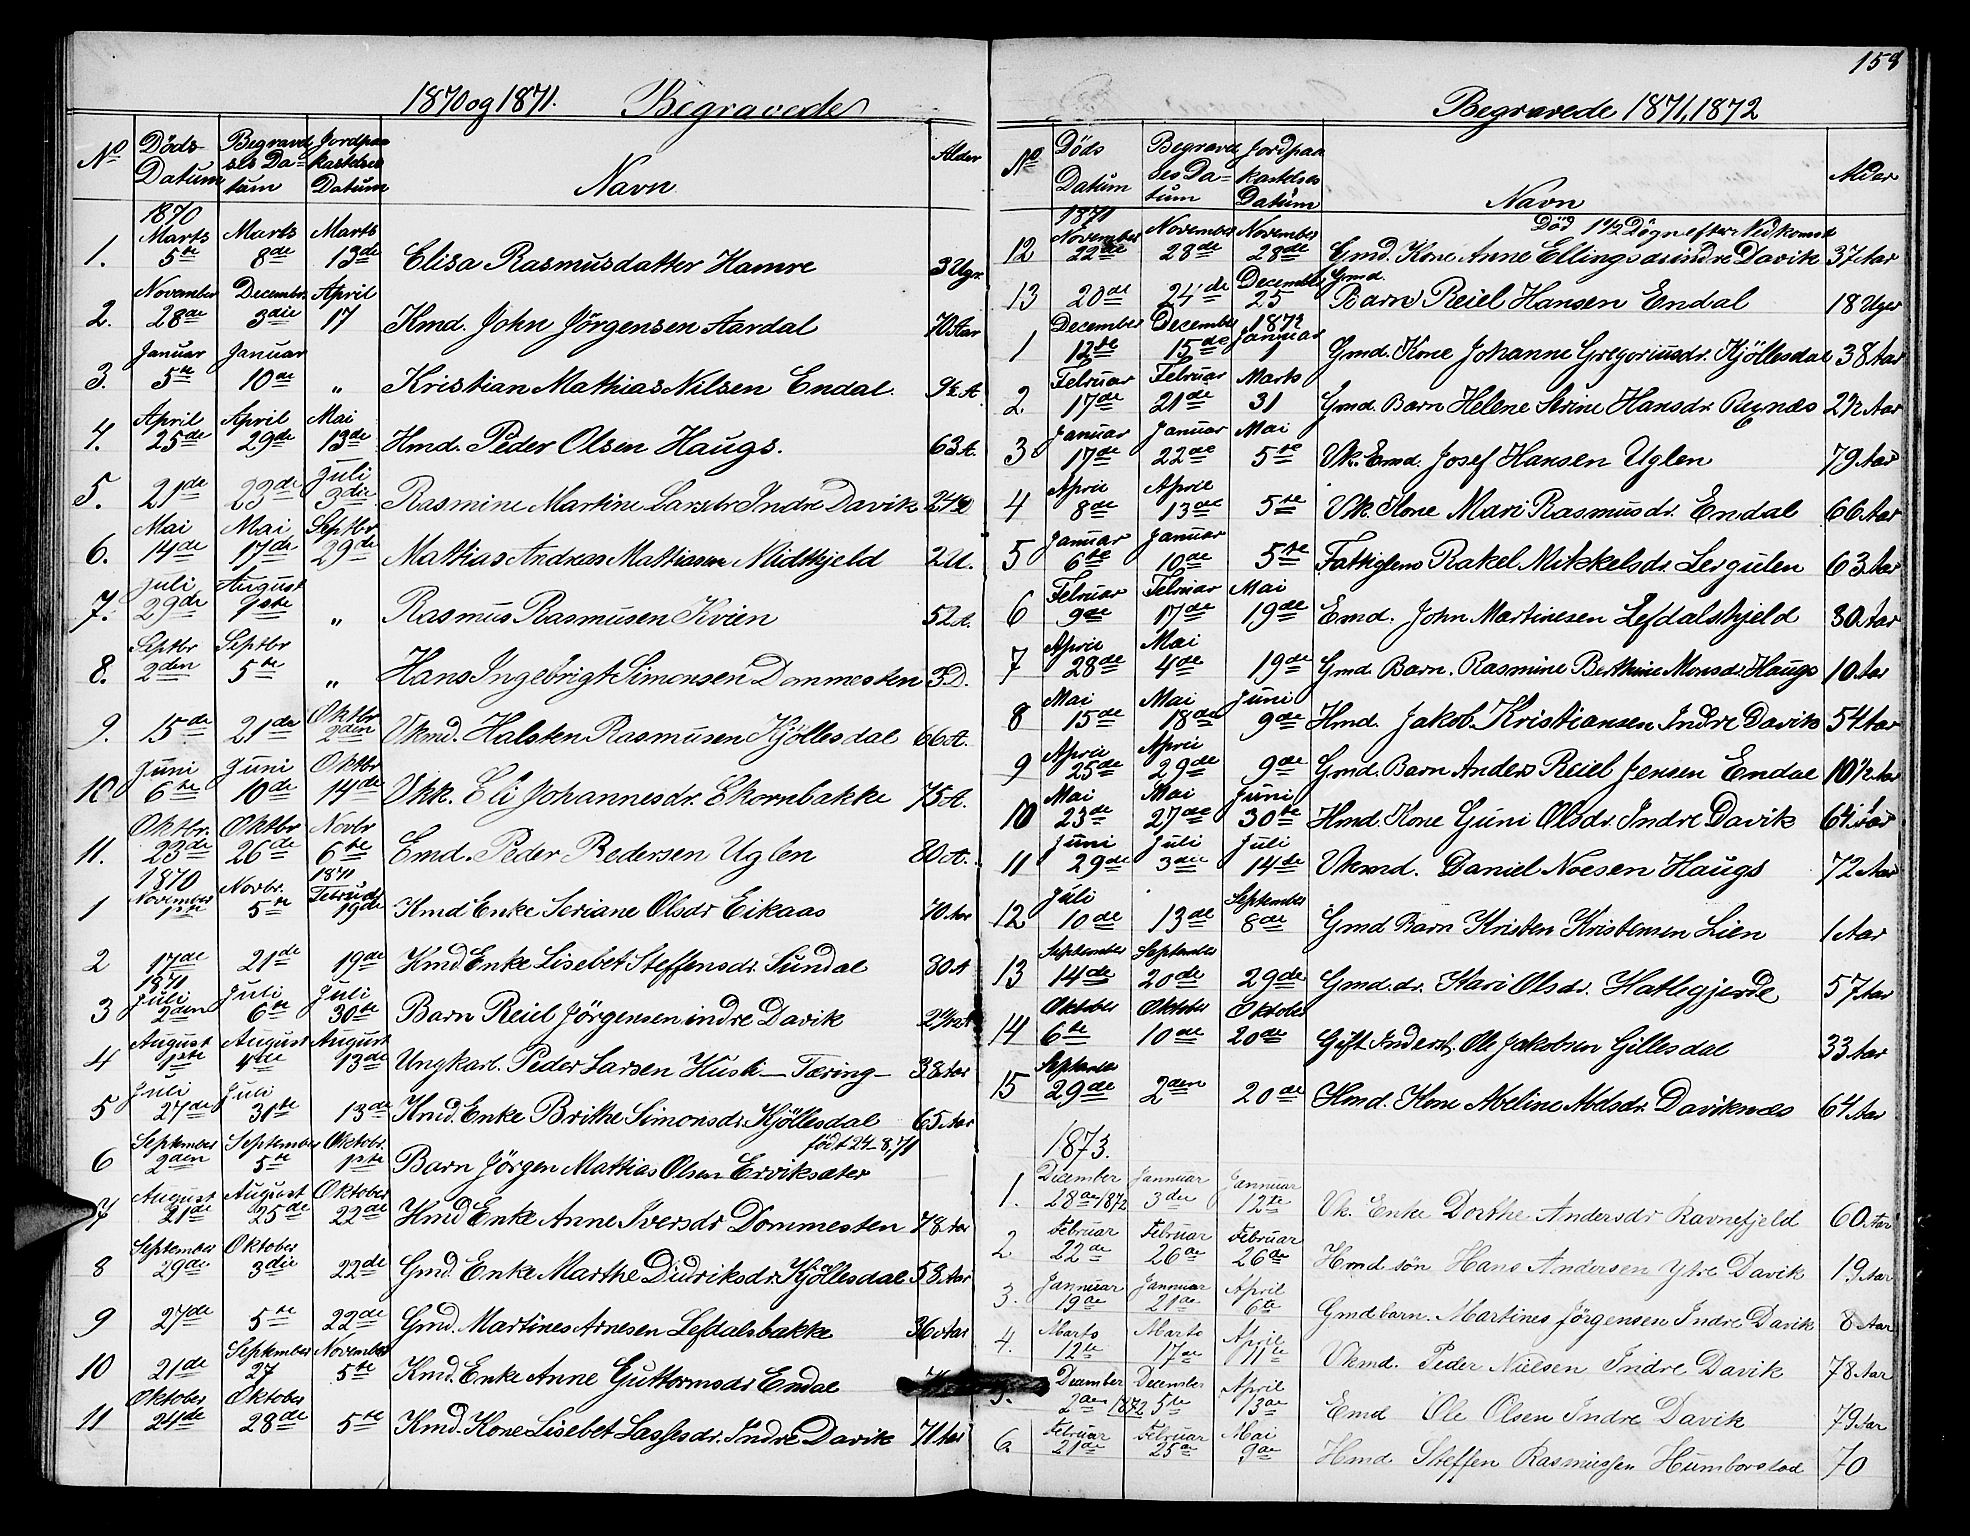 1870 og 1871. Begravede
No Döds Datum Begravelses Datum Jordpaakastelses Datum Navn Alder
1. 1870 Marts 5te Marts 8de Marts 13de Elisa Rasmusdatter Hamre 3 Ugr
2. November 28de Decembr 3die April 17 Kmd. John Jörgensen Aardal 70 Aar
3. Januar 5te Januar 10de „ Kristian Mathias Nilsen Endal.
4. April 25de April 29de Mai 13de Hmd. Peder Olsen Haugs. 63 A.
5. 21de 23de Juli 3die Rasmine Martine Larsdr Indre Davik
6. Mai 14de Mai 17de Septbr 29de Mathias Andreas Mathiassen Midthjeld 2 U.
7. Juli 29de August 1ste „ Rasmus Rasmusen Kvien 52 A.
8. Septbr 2den Septbr 5te „ Hans Ingebrigt Simonsen Dommesten 3 D.
9. 15de 21de Oktbr 2den Vkmd. Halsten Rasmusen Kjöllesdal 66 A.
10 Juni 6te Juni 10de Oktbr 14de Vkk. Eli Johannesdr. Ekornbakke 75 A.
11. Oktbr. 23de Oktbr 26de Novbr 6te Emd. Peder Pedersen Uglen 80 A.
1 1870 November 1ste Novbr. 5te 1871 Februar 19de Kmd Enke Seriane Olsdr Eikaas 70 Aar
2 17de 21de 19de Kmd. Enke Lisebet Steffensdr. Sundal 80 A
3 1871 Juli 2den Juli 6te Juli 30te Barn Reiel Jörgensen indre Davik
4 August 1ste August 4de August 13de Ungkarl. Peder Larsen Huse - Tæring - 38 Aar
5 Juli 27de Juli 31te 13de Kmd. Enke Brithe Simonsdr. Kjöllesdal 65 Aar
6 September 2den September 5te Oktobr. 1ste Barn Jörgen Mathias Olsen Erviksæter född 24-8,71
7 August 21de August 25de Oktober 22de Hmd Enke Anne Iversdr Dommesten 78 Aar
8 September 29de Oktober 3die 22de Gmd. Enke Marthe Didriksdr. Kjöllesdal 53 Aar
9 27de 5te 22de Gmd. Martines Arnesen Lefdalsbakke 36 Aar
10 21de September 27 November 5te Kmd. Enke Anne Guttormsdr Endal
11 Oktober 24de Oktober 28de 5te Kmd. Kone Lisebet Lassesdr. Indre Davik 71 Aar
158
Begravede 1871, 1872
No Döds Datum Begravelses Datum Jordpaakastelses Datum Navn Alder
12 1871 November 22de November 28de November 28de Död 1 1/2 Dögn efter Nedkomst Gmd. Kone Anne Ellingsdr indre Davik 37 Aar
13 20de 24de December 25 Gmd. Barn Reiel Hansen Endal 18 Uger
1 December 12te December 15de 1872 Januar 1 Gmd. Kone Johanne Gregoriusdr. Kjöllesdal 38 Aar
2 Februar 17de Februar 21de Marts 31 Gmd. Barn Helene Serine Hansdr. Rejnæs 2 1/2 Aar
3 Januar 17de Januar 22de Mai 5te Vk. Emd. Josef Hansen Uglen 79 Aar
4 April 8de April 13de 5te Vk. Kone Mari Rasmusdr. Endal 66 Aar
5 Januar 6te Januar 10de 5te Fattiglem Rakel Mikkelsdr. Lergulen 63 Aar
6 Februar 9de Februar 17de Mai 19de Emd. John Martinesen Lefdalshjeld 80 Aar
7 April 28de Mai 4de 19de Gmd. Barn. Rasmine Berthine Monsdr. Haugs 10 Aar
8 Mai 15de Mai 18de Juni 9de Hmd. Jakob Kristiansen Indre Davik 54 Aar
9 April 25de April 29de 9de Gmd. Barn Anders Reiel Jensen Endal 10 1/2 Aar
10 Mai 23de Mai 27de Juni 30te Hmd. Kone Guni Olsdr. Indre Davik 64 Aar
11 Juni 29de Juli 3die Juli 14de Vkmd. Daniel Noesen Haugs 72 Aar
12 Juli 10de 13de September 8de Gmd Barn Kristen Kristensen Lien 1 Aar
13 September 14de September 20de 29de Gmd. dr. Kari Olsdr. Hatlegjerde 57 Aar
14 Oktober 6te Oktober 10de Oktober 20de Gift Inderst, Ole Jakobsen Gillesdal 33 Aar
15 September 29de 2den 20de Hmd. Kone Abeline Abelsdr. Daviknes 64 Aar
1873.
1. December 28de 1872 Januar 3die Januar 12te Vk. Enke Dorthe Andersdr Ravnefjeld 60 Aar
2 Februar 22de Februar 26de Februar 26de Hmd sön Hans Andersen Ytre Davik 19 Aar
3. Januar 19de Januar 21de April 6te Gmd barn. Martines Jörgensen Indre Davik 8 Aar
4. Marts 12te Marts 17de April 11te Vkmd. Peder Nielsen Indre Davik 78 Aar
5. December 2den 1872 December 5te April 13de Emd Ole Olsen Indre Davik 79 Aar
6 Februar 21de Februar 25de Mai 9de Hmd. Steffen Rasmussen Humborstad 70